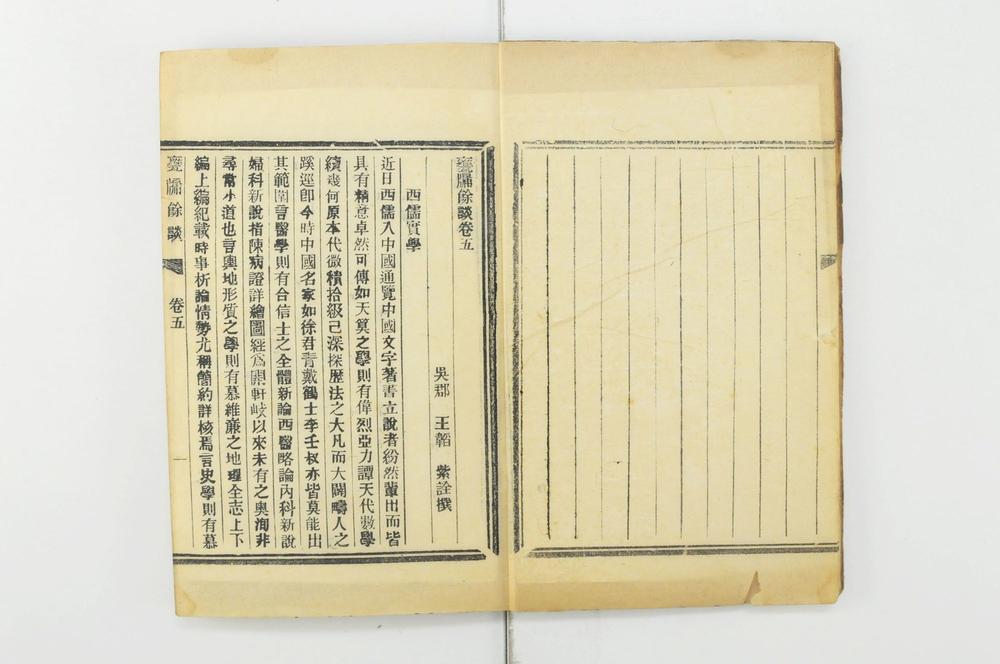 甕牖餘談卷五
吳郡　王韜　紫詮撰
西儒實學
近日西儒入中國通覽中國文字著書立說者紛然輩出而皆
具有精意卓然可傳如天算之學則有偉烈亞力譚天代數學
續幾何原本代微積拾級己深探歷法之大凡而大闢疇人之
蹊逕卽今時中國名家如徐君青戴鶴士李壬叔亦皆莫能出
其範圍言醫學則有合信士之全體新論西醫略論內科新說
婦科新說指陳病證詳繪圖經爲闢軒岐以來未有之奧洵非
尋常小道也言輿地形質之學則有慕維廉之地理全志上下
編上編紀載時事析論情勢尤稱簡約詳核焉言史學則有慕
甕牖餘談　卷五　一